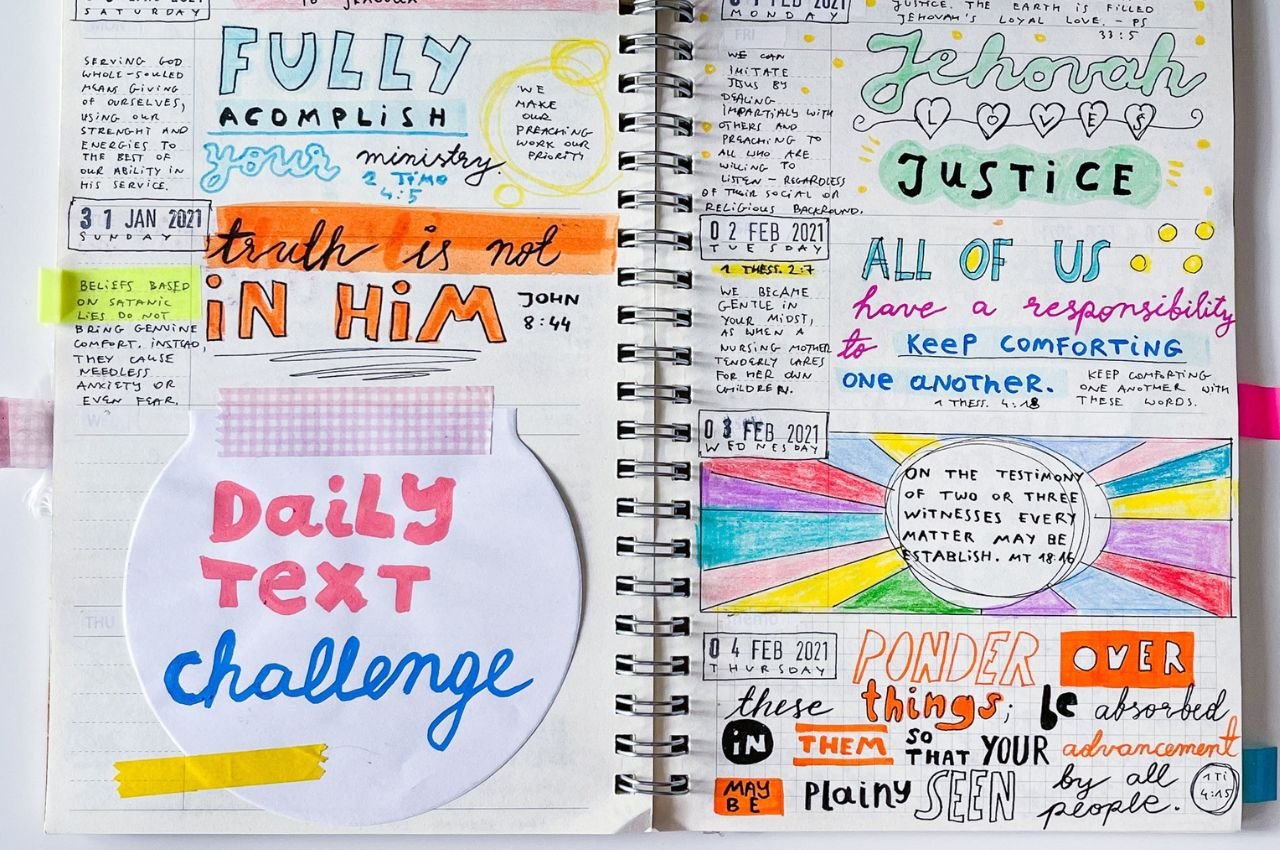 SATURDAY
FULLY
ACOMPLISH
your ministry.
2 TIMO
4:5
SERVING GOD
WHOLE-SOULED
MEANS GIVING
OF OURSELVES,
USING OUR
STRENGHT AND
ENERGIES TO
THE BEST OF
OUR ABILITY IN
HIS SERVICE.
"WE
MAKE
OUR
PREACHING
WORK OUR
PRIORITY
31 JAN 2021
SUNDAY
truth is not
iN HiM
JOHN
8:44
BELIEFS BASED
ON SATANIC
LIES DO NOT
BRING GENUINE
COMFORT. INSTEAD,
THEY CAUSE
NEEDLESS
ANXIETY OR
EVEN FEAR.
W
DaiLy
TexT
challenge
THU
FEB 2021
MONDAY
JUSTICE. THE EARTH IS FILLED
JEHOVAH'S LOYAL LOVE. - PS
33:5
FRI
WE CAN
IMITATE
JSUS BY
DEALING
IMPARTIALY WITH
OTHERS AND
PREACHING TO
ALL WHO ARE
WILLING TO
LISTEN - REGARDLESS
OF THEIR SOCIAL OR
RELIGIOUS BACKROUND.
Jehovah
LOVES
JUSTiCE
02 FEB 2021
TUESDAY
1 THESS. 2:7
WE BECAME
GENTLE IN
YOUR MIDST,
AS WHEN A
NURSING MOTHER
TENDERLY CARES
FOR HER OWN
CHILDREN.
ALL OF US
have a responsibility
to KEEP COMFORTING
ONE ANOTHER.
1 THESS. 4:18
KEEP COMFORTING
ONE ANOTHER WITH
THESE WORDS.
03 FEB 2021
WEDNESDAY
ON THE TESTIMONY
OF TWO OR THREE
WITNESSES EVERY
MATTER MAY BE
ESTABLISH. MT 18:16
memo
04 FEB 2021
THURSDAY
PONDER OVER
these things; be absorbed
iN THEM SO THAT YOUR advancement
MAY BE PLainy SEEN by all people.
1 Ti
4:15